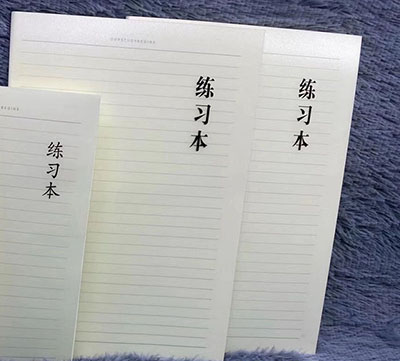 练习本
练习本
练习本